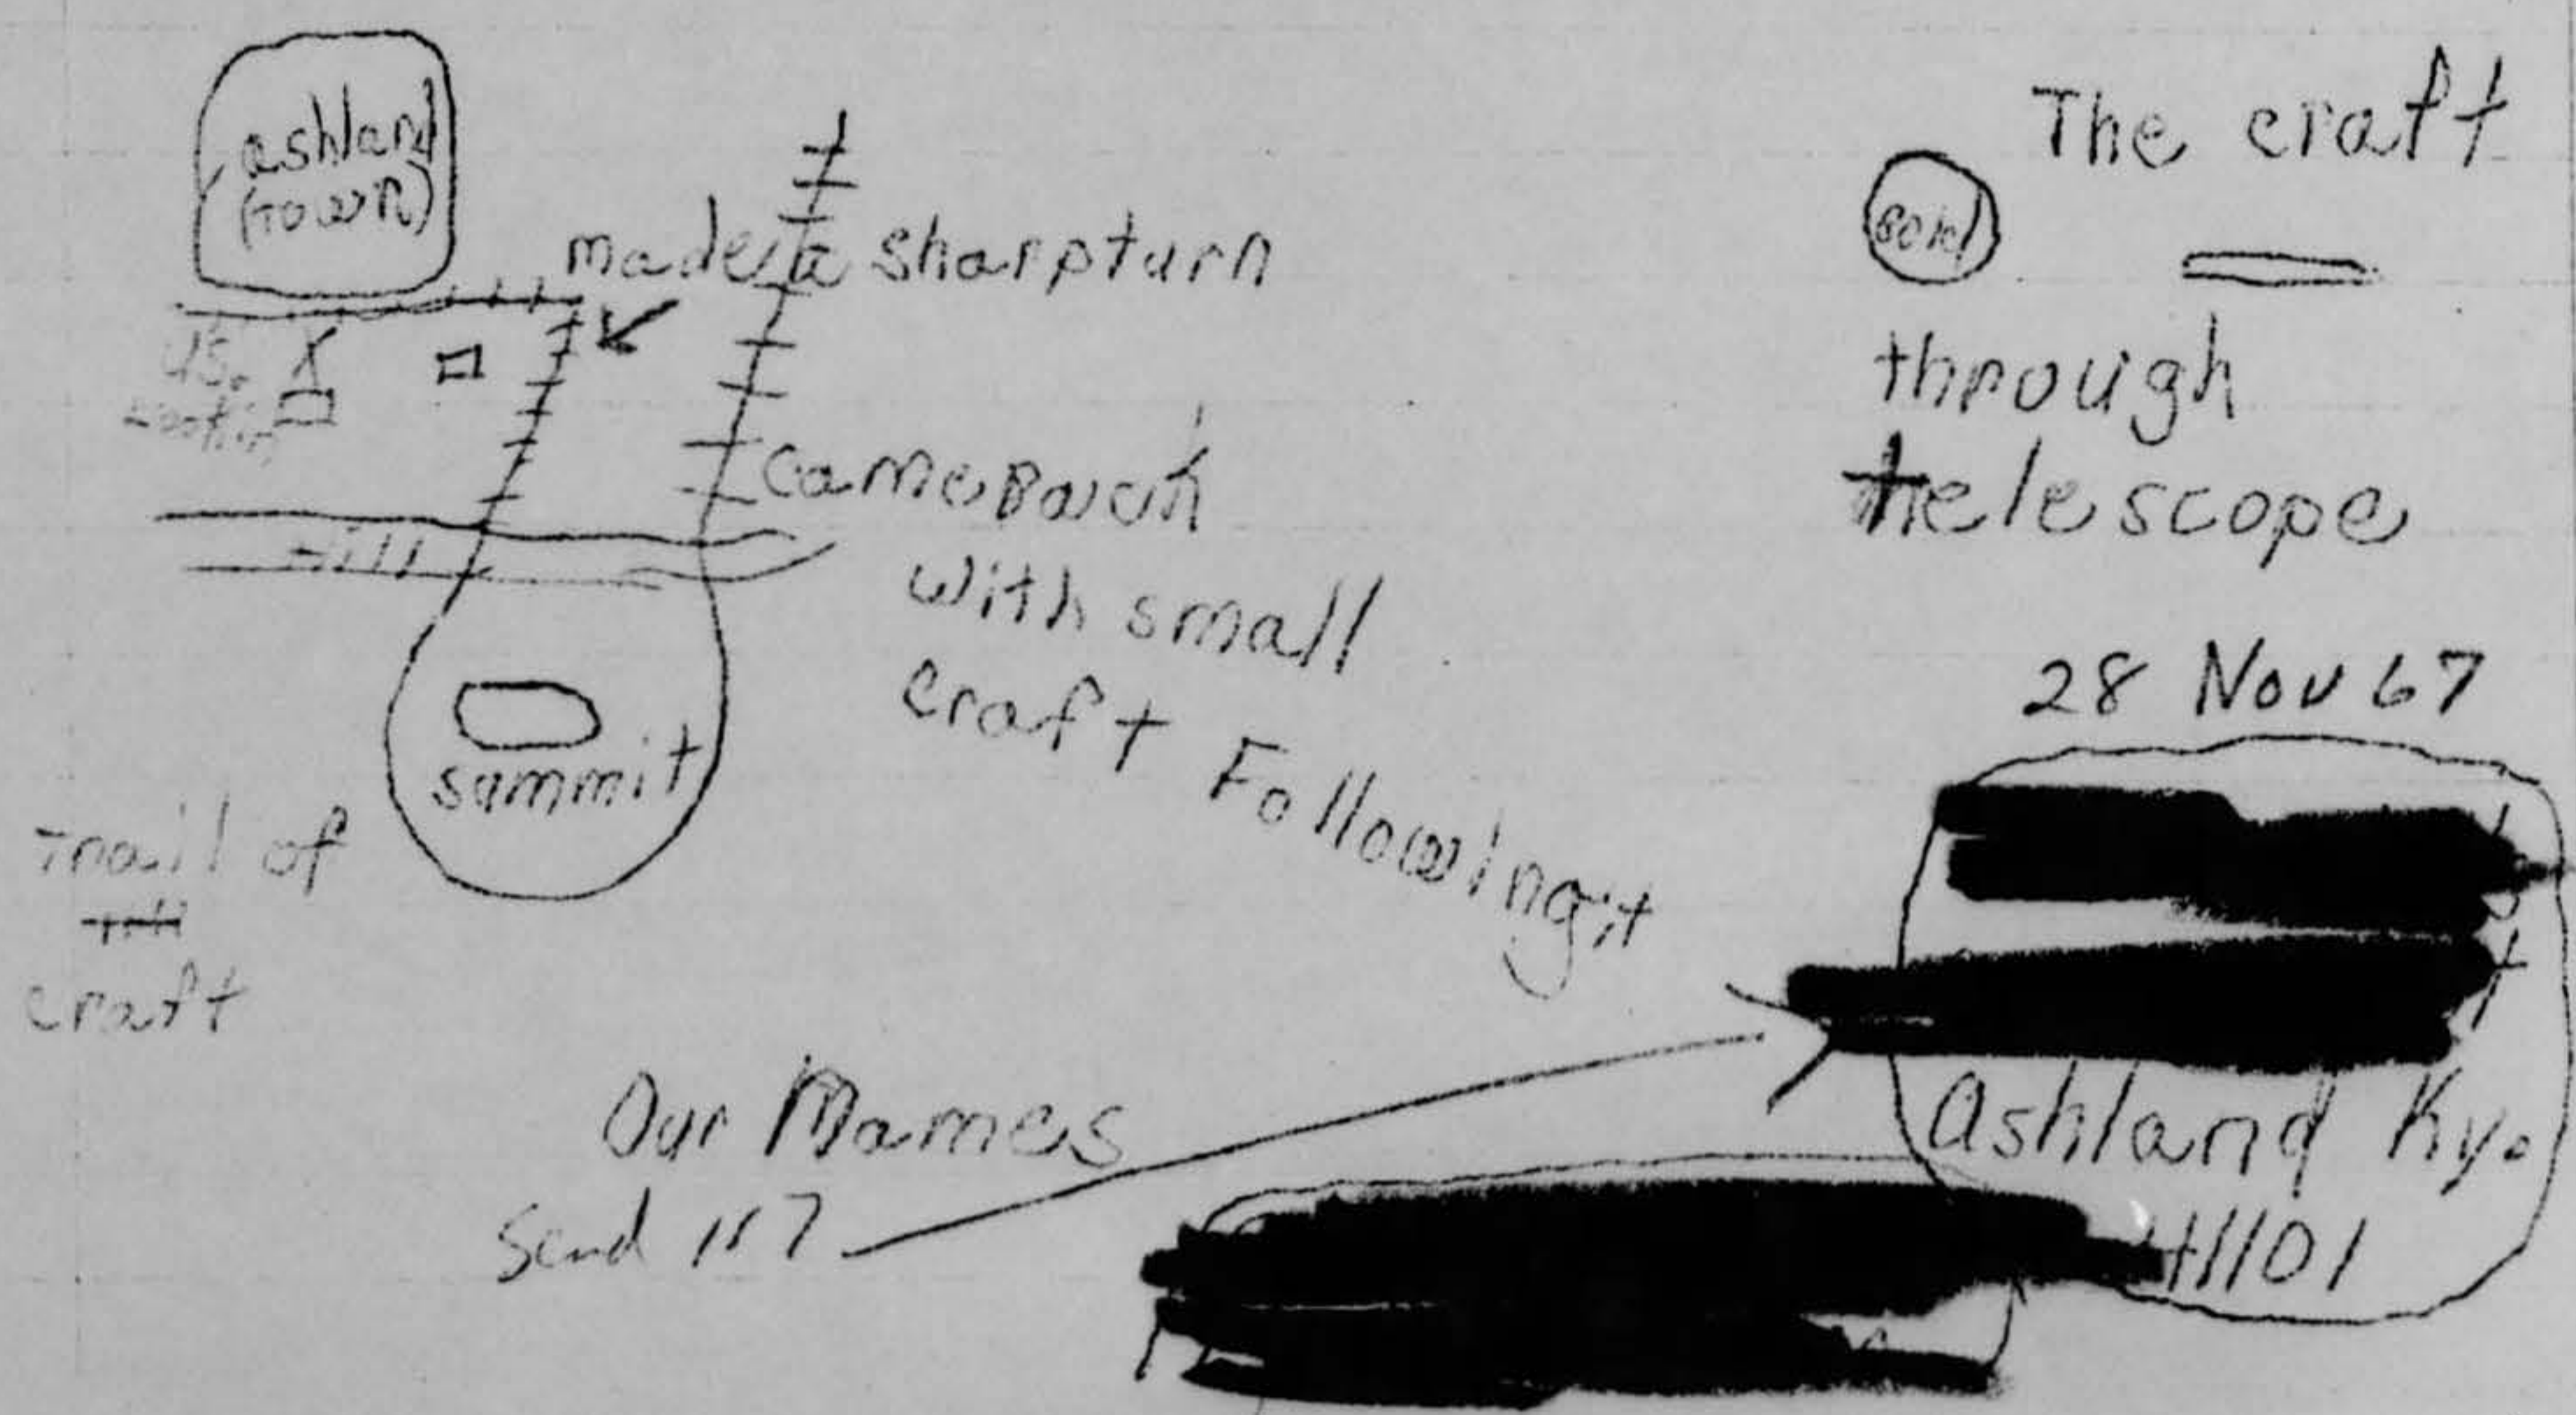 ashland
(Town)
made a sharp turn
US.
X
Hill
came Back
with small
craft Following it
summit
Trail of
craft
The craft
Gold
through
telescope
28 Nov 67
Ashland Ky.
41101
Our Names
Send 117